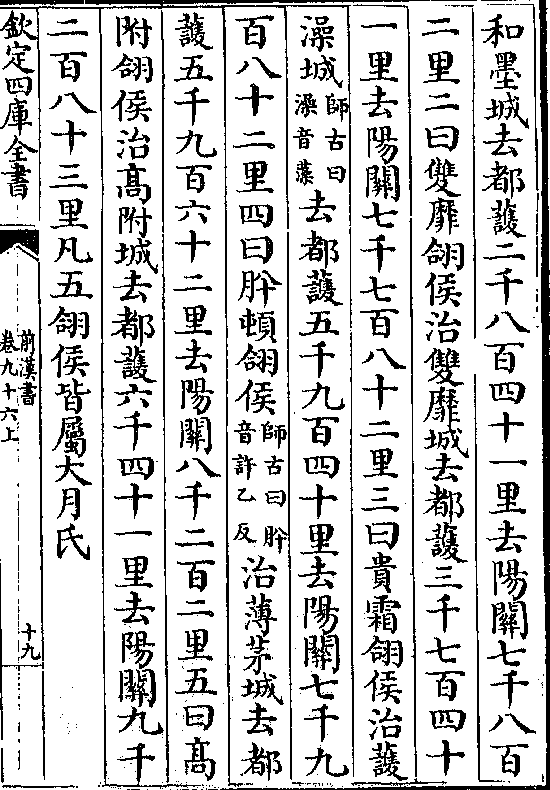 和墨城去都䕶二千八百四十一里去陽關七千八百
二里二曰雙靡翖侯治雙靡城去都䕶三千七百四十
一里去陽關七千七百八十二里三曰貴霜翖侯治䕶
澡城師古曰澡音藻去都䕶五千九百四十里去陽關七千九
百八十二里四曰肸頓翖侯師古曰肸音許乙反治薄茅城去都
䕶五千九百六十二里去陽關八千二百二里五曰髙
附翖侯治髙附城去都䕶六千四十一里去陽關九千
二百八十三里凡五翖侯皆屬大月氏
欽定四庫全書
前漢書
卷九十六上
十九